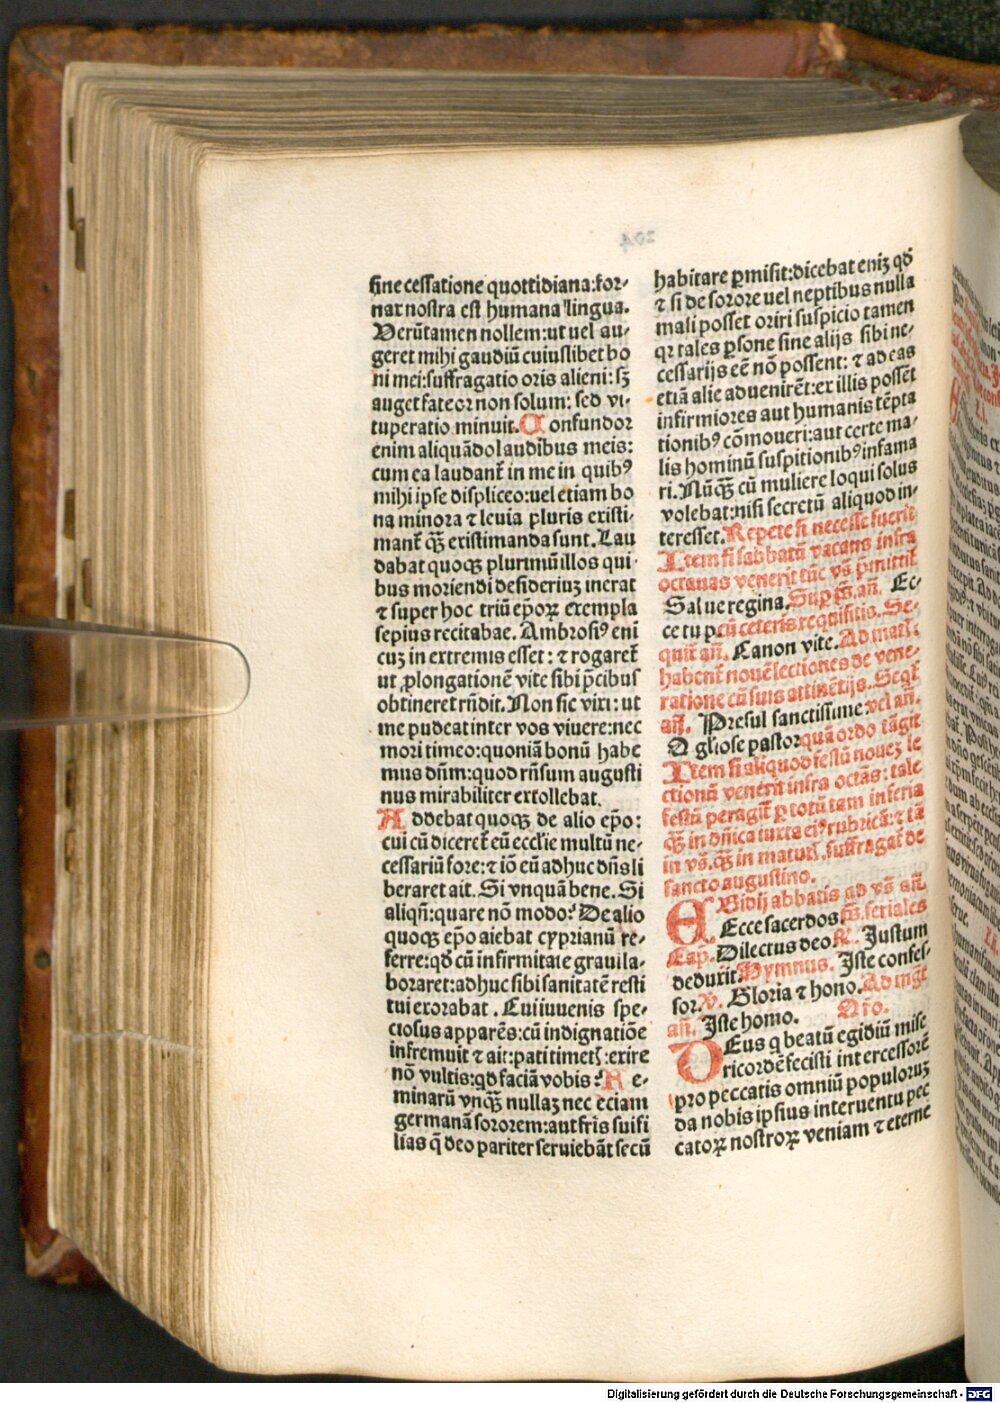 sine cessatione quottidiana: for-
nax nostra est humana lingua.
Verūtamen nollem: ut uel au-
geret mihi gaudiū cuiuslibet bo
ni mei: suffragatio oris alieni: sʒ
auget fateor non solum: sed vi-
tuperatio minuit. Confundor
enim aliquādo laudibus meis:
cum ea laudant᷑ in me in quibꝰ
mihi ipse displiceo: uel etiam bo
na minora ⁊ leuia pluris existi-
mant᷑ qꝫ existimanda sunt. Lau
dabat quoqꝫ plurimū illos qui-
bus moriendi desideriuʒ inerat
⁊ super hoc triū ep̄oꝝ exempla
sepius recitabae. Ambrosiꝰ eni
cuʒ in extremis esset: ⁊ rogaret᷑
ut ꝓlongationē vite sibi p̄cibus
obtineret rn̄dit. Non sic vixi: ut
me pudeat inter vos viuere: nec
mori timeo: quoniā bonū habe
mus dn̄m: quod rn̄sum augusti
nus mirabiliter extollebat.
Addebat quoqꝫ de alio ep̄o:
cui cū diceret᷑ eū ecclīe multū ne-
cessariū fore: ⁊ iō eū adhuc dn̄s li
beraret ait. Si vnquā bene. Si
aliqn̄: quare nō modo? De alio
quoqꝫ ep̄o aiebat cyprianū re-
ferre: qd̄ cū infirmitate graui la-
boraret: adhuc sibi sanitatē resti
tui exorabat. Cui iuuenis spe-
ciosus apparēs: cū indignatiōe
infremuit ⁊ ait: pati timetꝭ: exire
nō vultis: qd̄ faciā vobis? Re-
minarū vnqꝫ nullaʒ nec eciam
germanā sororem: aut fr̄is sui fi
lias q̄ deo pariter seruiebāt secū
204
habitare ꝑmisit: dicebat eniʒ qd̄
⁊ si de sorore uel neptibus nulla
mali posset oriri suspicio tamen
qꝛ tales ꝑsone sine alijs sibi ne-
cessarijs eē nō possent: ⁊ ad eas
etiā alie aduenirēt: ex illis possēt
infirmiores aut humanis tēpta
tionibꝰ cōmoueri: aut certe ma-
lis hominū suspitionibꝰ infama
ri. Nūqꝫ cū muliere loqui solus
volebat: nisi secretū aliquod in-
teresset. Repete si necesse fuerit
Item si sabbatū vacans infra
octauas venerit tūc vꝭ p̄mittit᷑
Salue regina. Suꝑ pꝭ. an̄. Ec-
ce tu p cū ceteris requisitis. Se-
quit᷑ an̄. Canon vite. Ad matꝭ:
habent᷑ noue lectiones de vene-
ratione cū suis attinētijs. Seqt᷑
an̄. Presul sanctissime vel an̄.
O gliose pastor quā ordo tāgit
Item si aliquod festū noueʒ le
ctionū venerit infra octās: tale
festū peragit᷑ ꝑ totū tam in feria
qꝫ in dn̄ica iuxta eiꝰ rubricā: ⁊ tā
in vꝭ. qꝫ in matutꝭ. suffragat᷑ de
sancto augustino.
Egidij abbatis ad vꝭ an̄.
Ecce sacerdos. pꝭ. feriales
Cap. Dilectus deo ℟. Justum
deduxit. Hymnus. Iste confes-
sor. ℣. Gloria ⁊ hono. Ad mgt̄
an̄. Iste homo. Or̄o.
Deus q beatū egidiū mise
ricordē fecisti intercessorē
pro peccatis omniū populoruʒ
da nobis ipsius interuentu pec
catoꝝ nostroꝝ veniam ⁊ eterne
Digitalisierung gefördert durch die Deutsche Forschungsgemeinschaft - DFG